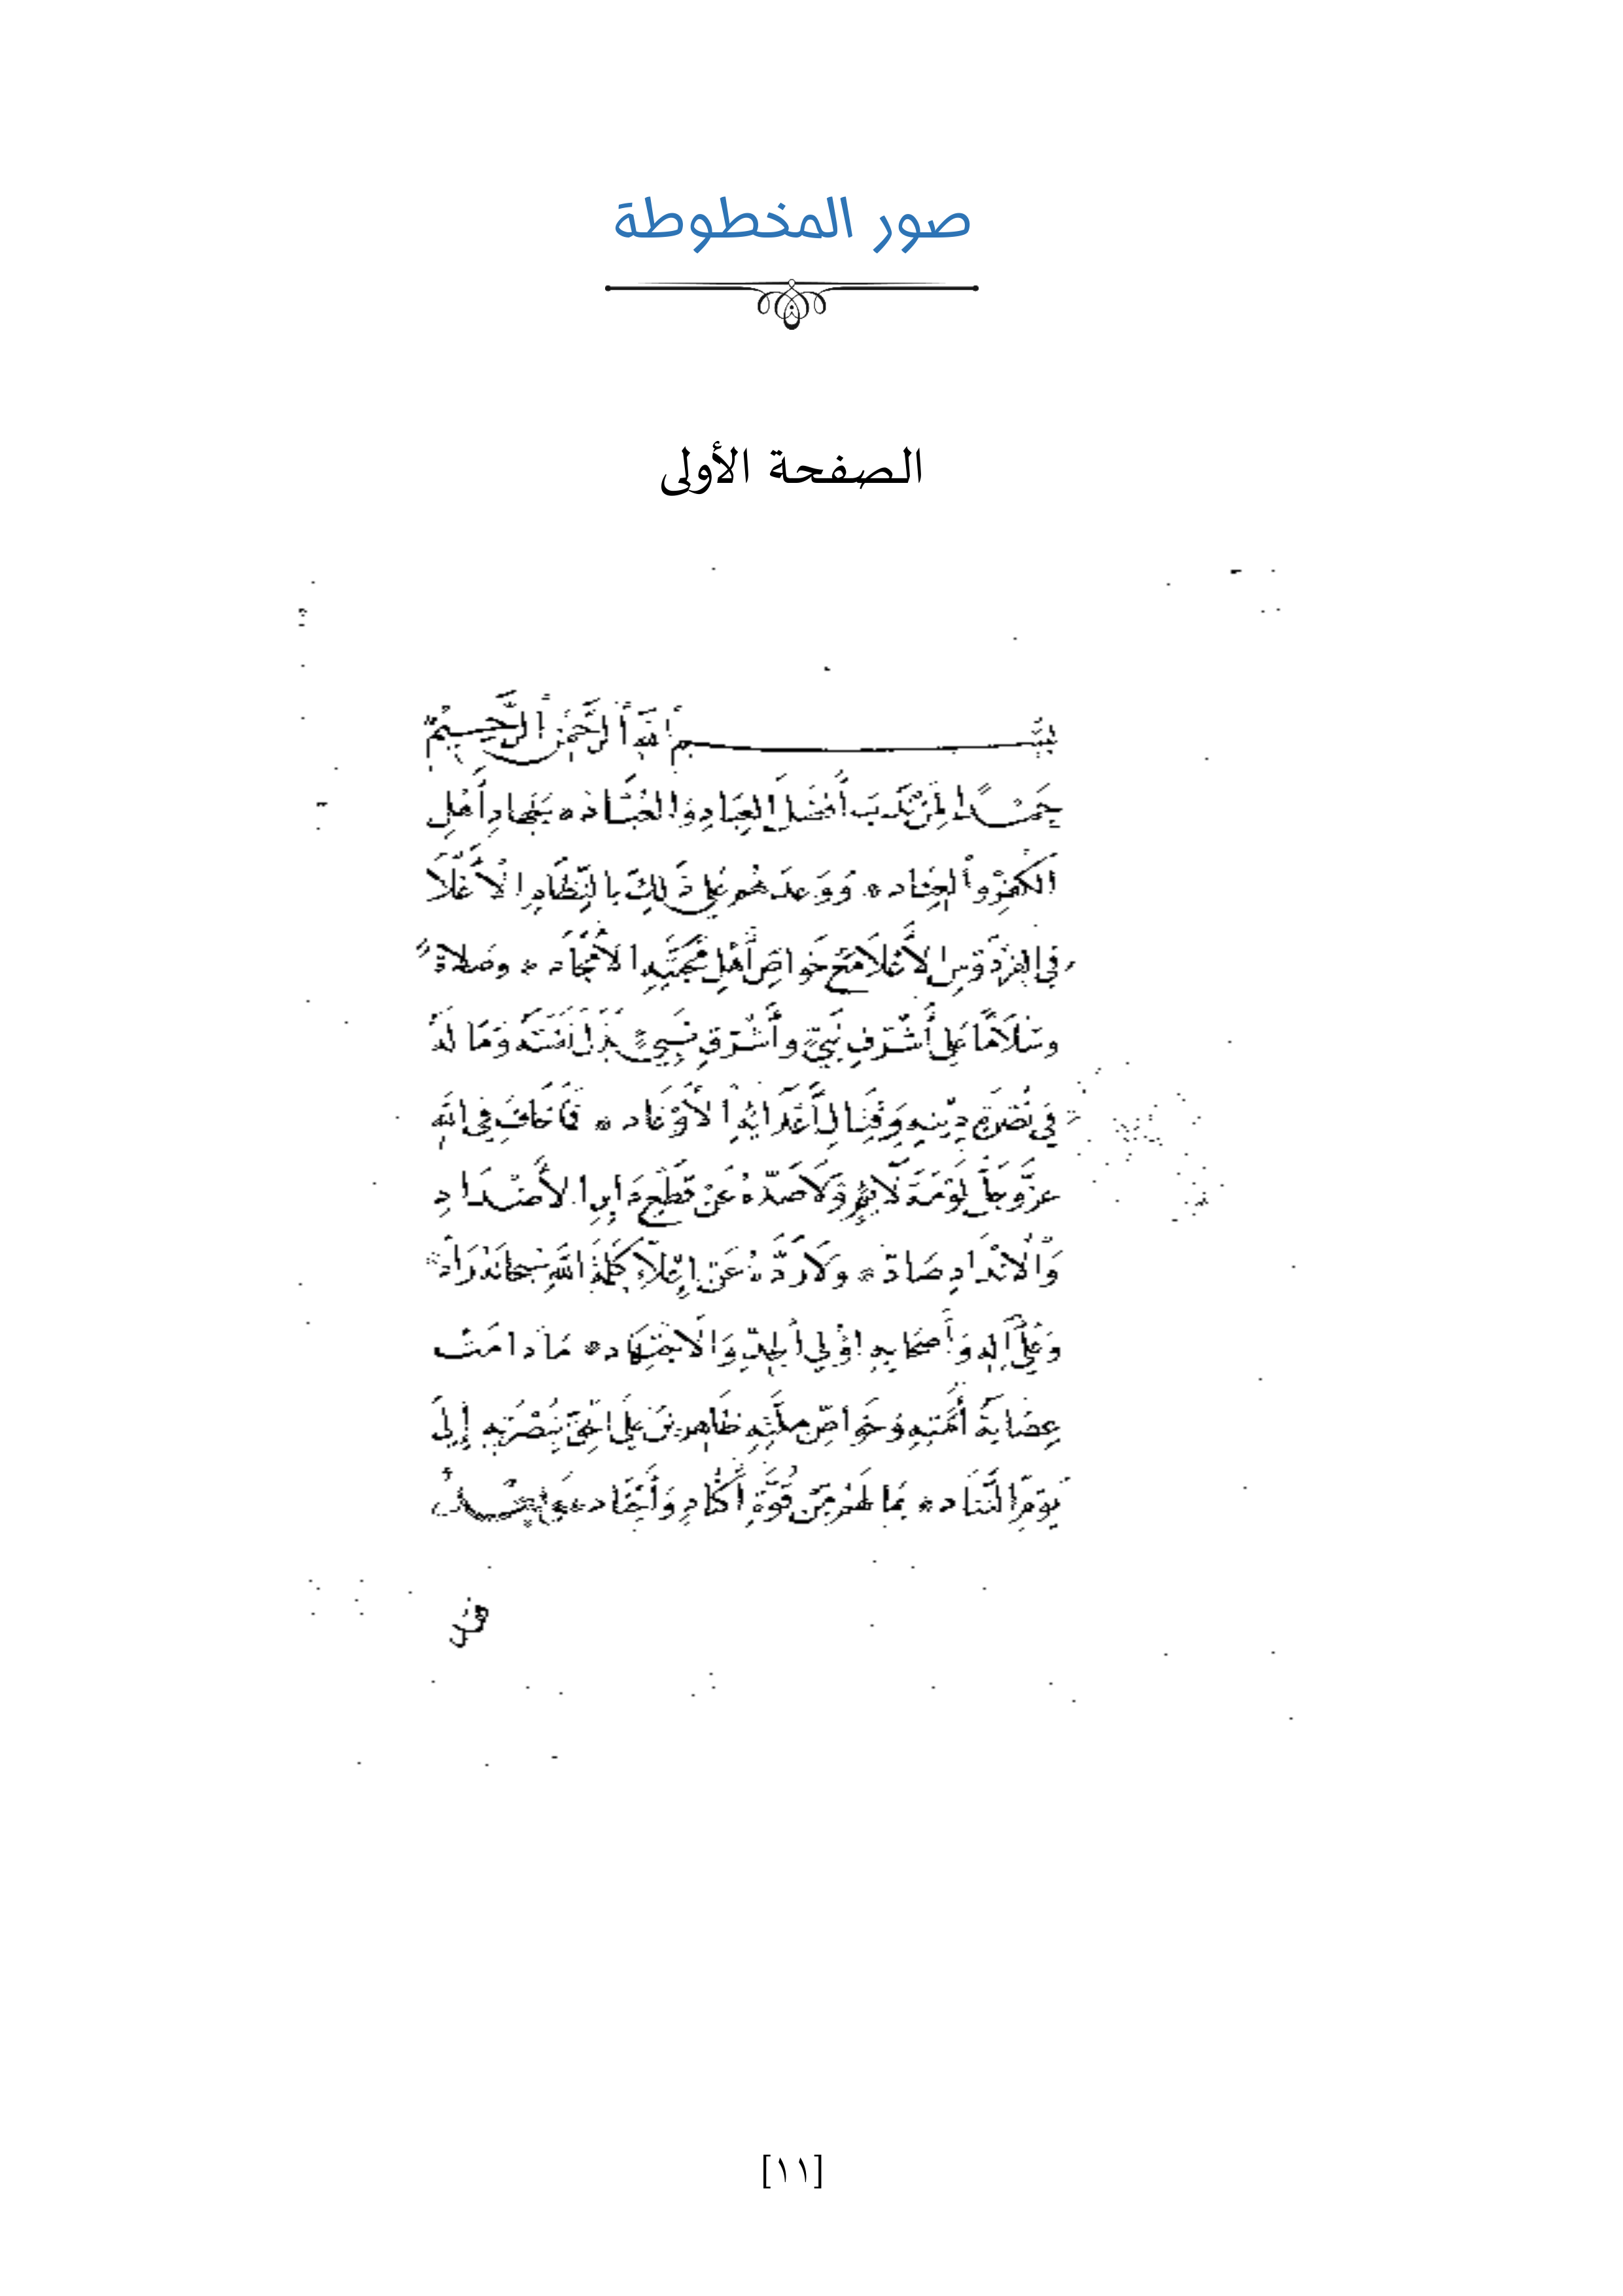 صور المخطوطة
الصفحة الأولى
بسم الله الرحمن الرحيم
حمدًا لمن ندب أفضل العباد والعُبَّاد * بجهاد أهل
الكفر والعناد * ووعدهم على ذلك بالنظر الأعلا
في الفردوس الأعلا مع خواص أهل محبته الأمجاد * وصلاةً
وسلامًا على أشرف نبيّ وأشرق نبيء بذل نفسه وما له
في نصرة دينه وقتال أعدائه الأوغاد * فما خاف في الله
عزّ وجلّ لومة لائم ولا صدّه عن قطع دابر الأضداد
والأنداد صادّ * ولا ردّه عن إعلاء كلمة الله سبحانه رادّ
وعلى آله وأصحابه أولي الجدّ والاجتهاد * ما دامت
عصابة أمّته وخواصّ ملّته ظاهرين على الحق بنصرته إلى
يوم التناد * بما لهم من قوّة أكباد وأجناد * وبعد
[١١]